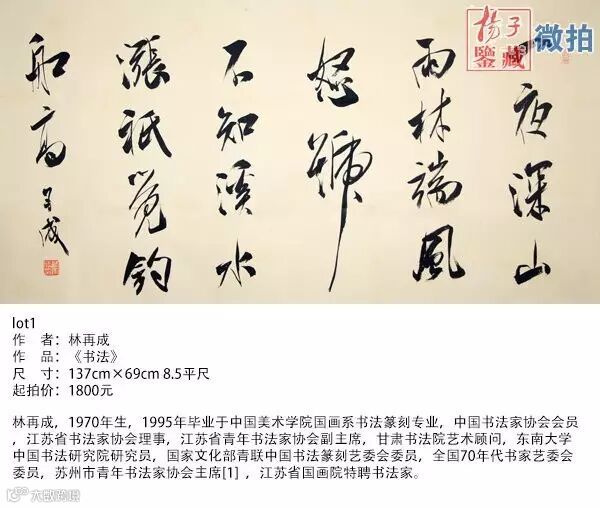 揚子
鑒藏
微拍
夜深山
雨林端風
怒號
不知溪水
漲祇覺釣
船高
再成
lot1
作 者：林再成
作 品：《书法》
尺 寸：137cm×69cm 8.5平尺
起拍价：1800元
林再成，1970年生，1995年毕业于中国美术学院国画系书法篆刻专业，中国书法家协会会员
，江苏省书法家协会理事，江苏省青年书法家协会副主席，甘肃书法院艺术顾问，东南大学
中国书法研究院研究员，国家文化部青联中国书法篆刻艺委会委员，全国70年代书家艺委会
委员，苏州市青年书法家协会主席[1] ，江苏省国画院特聘书法家。